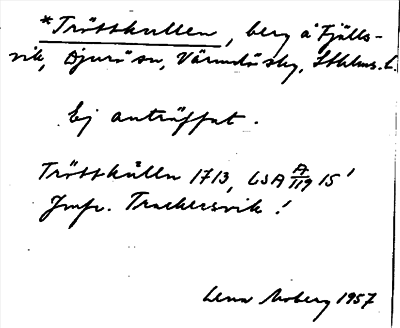 *Trösskullen, berg å Fjälls-
vik, Djurö sn, Värmdö sbg, Sthlms. l.
Ej anträffat.
Trösskulln 1713, LSA A/119 15'
Jmfr. Trackersvik!
Lena Moberg 1957